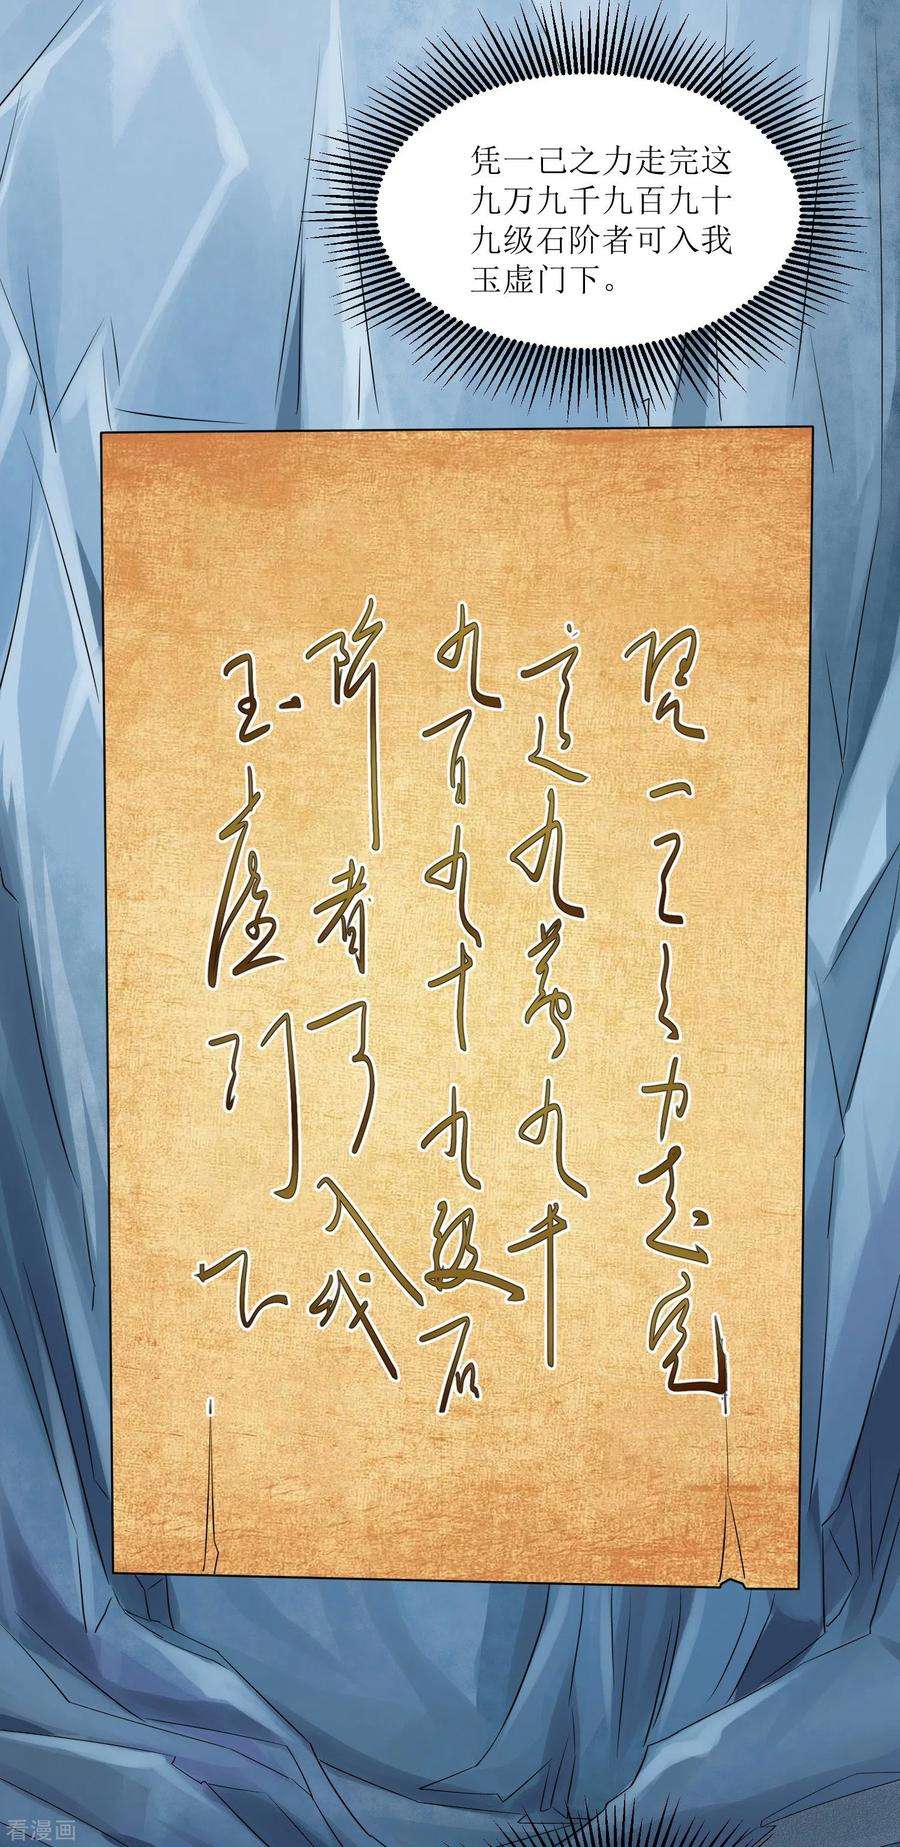 凭一己之力走完这
九万九千九百九十
九级石阶者可入我
玉虚门下。
凭一己之力走完
这九萬九千
九百九十九级石
阶者可入我
玉虚门下
看漫画